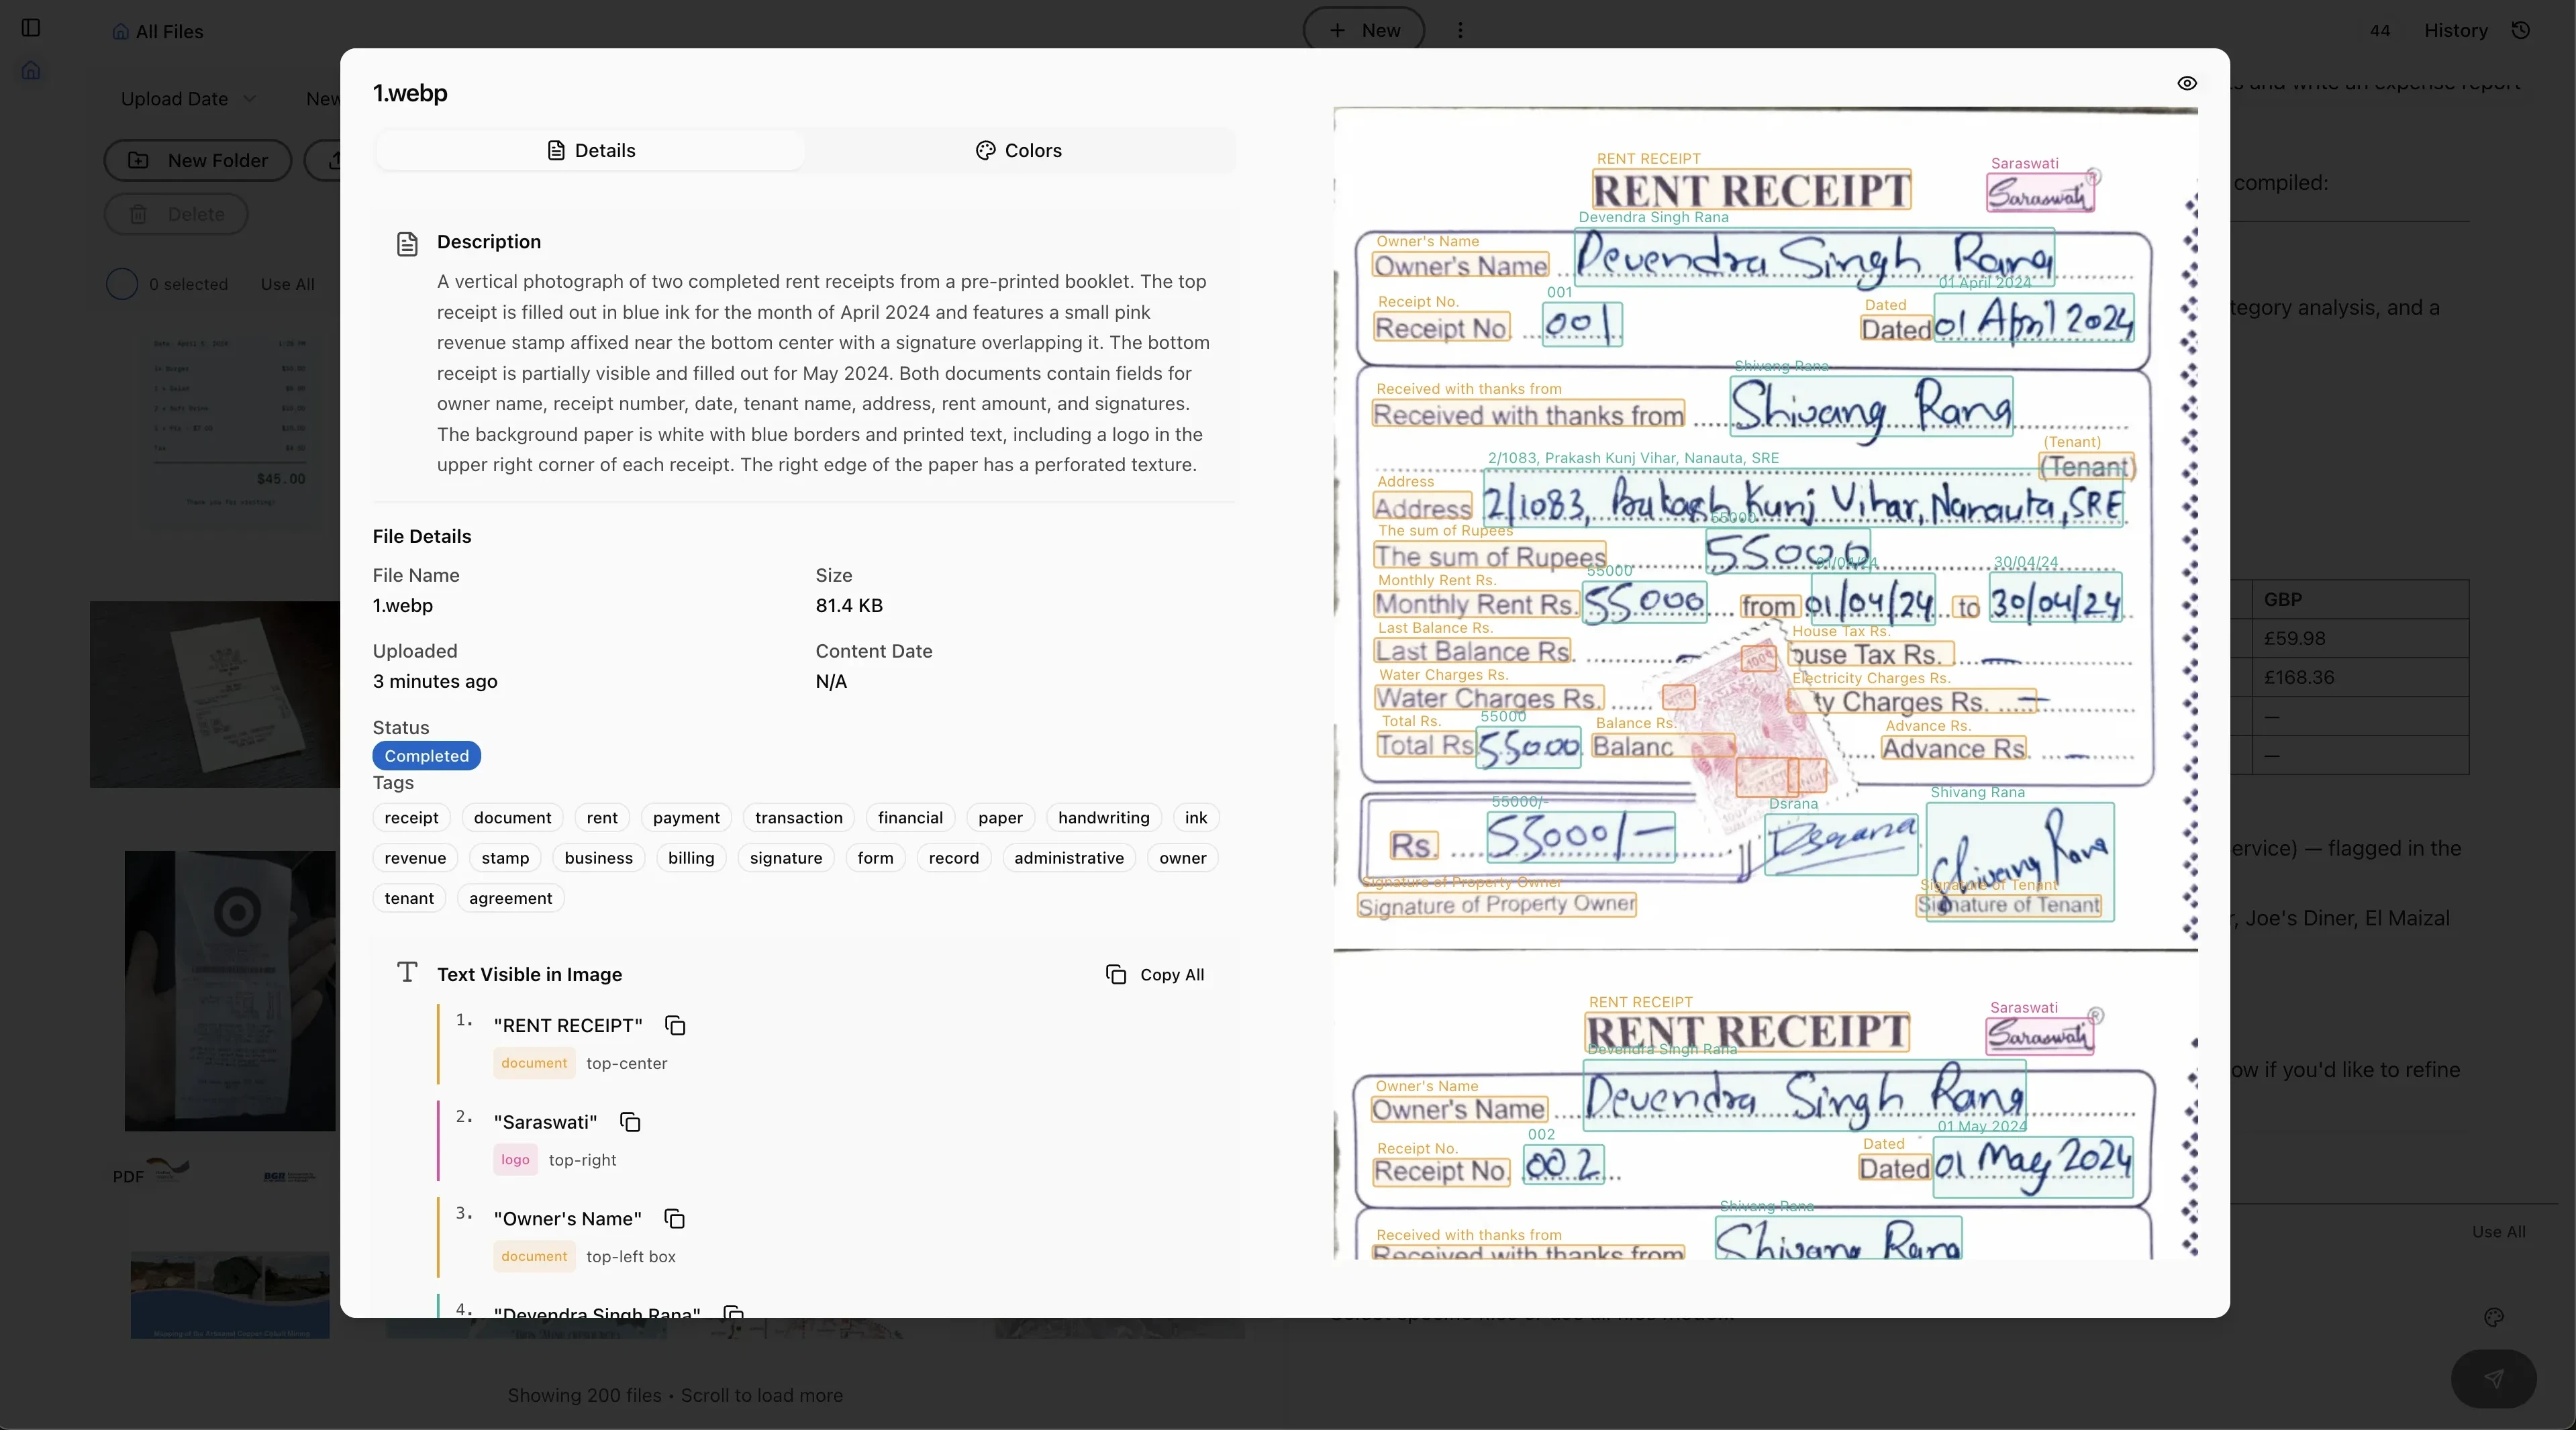 All Files
New
44
History
Upload Date
New
s and write an expense report
New Folder
Delete
compiled:
0 selected
Use All
tegory analysis, and a
$45.00
GBP
£59.98
£168.36
—
—
ervice) — flagged in the
r, Joe's Diner, El Maizal
ow if you'd like to refine
PDF
Use All
Showing 200 files • Scroll to load more
1.webp
Details
Colors
Description
A vertical photograph of two completed rent receipts from a pre-printed booklet. The top
receipt is filled out in blue ink for the month of April 2024 and features a small pink
revenue stamp affixed near the bottom center with a signature overlapping it. The bottom
receipt is partially visible and filled out for May 2024. Both documents contain fields for
owner name, receipt number, date, tenant name, address, rent amount, and signatures.
The background paper is white with blue borders and printed text, including a logo in the
upper right corner of each receipt. The right edge of the paper has a perforated texture.
File Details
File Name
Size
1.webp
81.4 KB
Uploaded
Content Date
3 minutes ago
N/A
Status
Completed
Tags
receipt document rent payment transaction financial paper handwriting ink
revenue stamp business billing signature form record administrative owner
tenant agreement
Text Visible in Image
Copy All
1. "RENT RECEIPT"
document top-center
2. "Saraswati"
logo top-right
3. "Owner's Name"
document top-left box
4. "Devendra Singh Rana"
RENT RECEIPT
Saraswati
RENT RECEIPT
Saraswati ®
Devendra Singh Rana
Owner's Name
Owner's Name Devendra Singh Rana
001
01 April 2024
Receipt No.
Dated
Receipt No. 001 Dated 01 April 2024
Shivang Rana
Received with thanks from
Received with thanks from Shivang Rana
(Tenant)
(Tenant)
2/1083, Prakash Kunj Vihar, Nanauta, SRE
Address
Address 2/1083, Prakash Kunj Vihar, Nanauta, SRE
55000
The sum of Rupees
The sum of Rupees 55000
55000
01/04/24
30/04/24
Monthly Rent Rs.
Monthly Rent Rs. 55000 from 01/04/24 to 30/04/24
Last Balance Rs.
House Tax Rs.
Last Balance Rs. – ouse Tax Rs. —
Water Charges Rs.
Electricity Charges Rs.
Water Charges Rs. ty Charges Rs. —
Total Rs.
55000
Balance Rs.
Advance Rs.
Total Rs 55000 Balanc Advance Rs. –
55000/-
Dsrana
Shivang Rana
Rs. 55000/- Dsrana Shivang Rana
Signature of Property Owner
Signature of Tenant
Signature of Property Owner Signature of Tenant
RENT RECEIPT
Saraswati
RENT RECEIPT
Saraswati ®
Devendra Singh Rana
Owner's Name
Owner's Name Devendra Singh Rana
002
01 May 2024
Receipt No.
Dated
Receipt No. 002 Dated 01 May 2024
Shivang Rana
Received with thanks from
Received with thanks from Shivang Rana